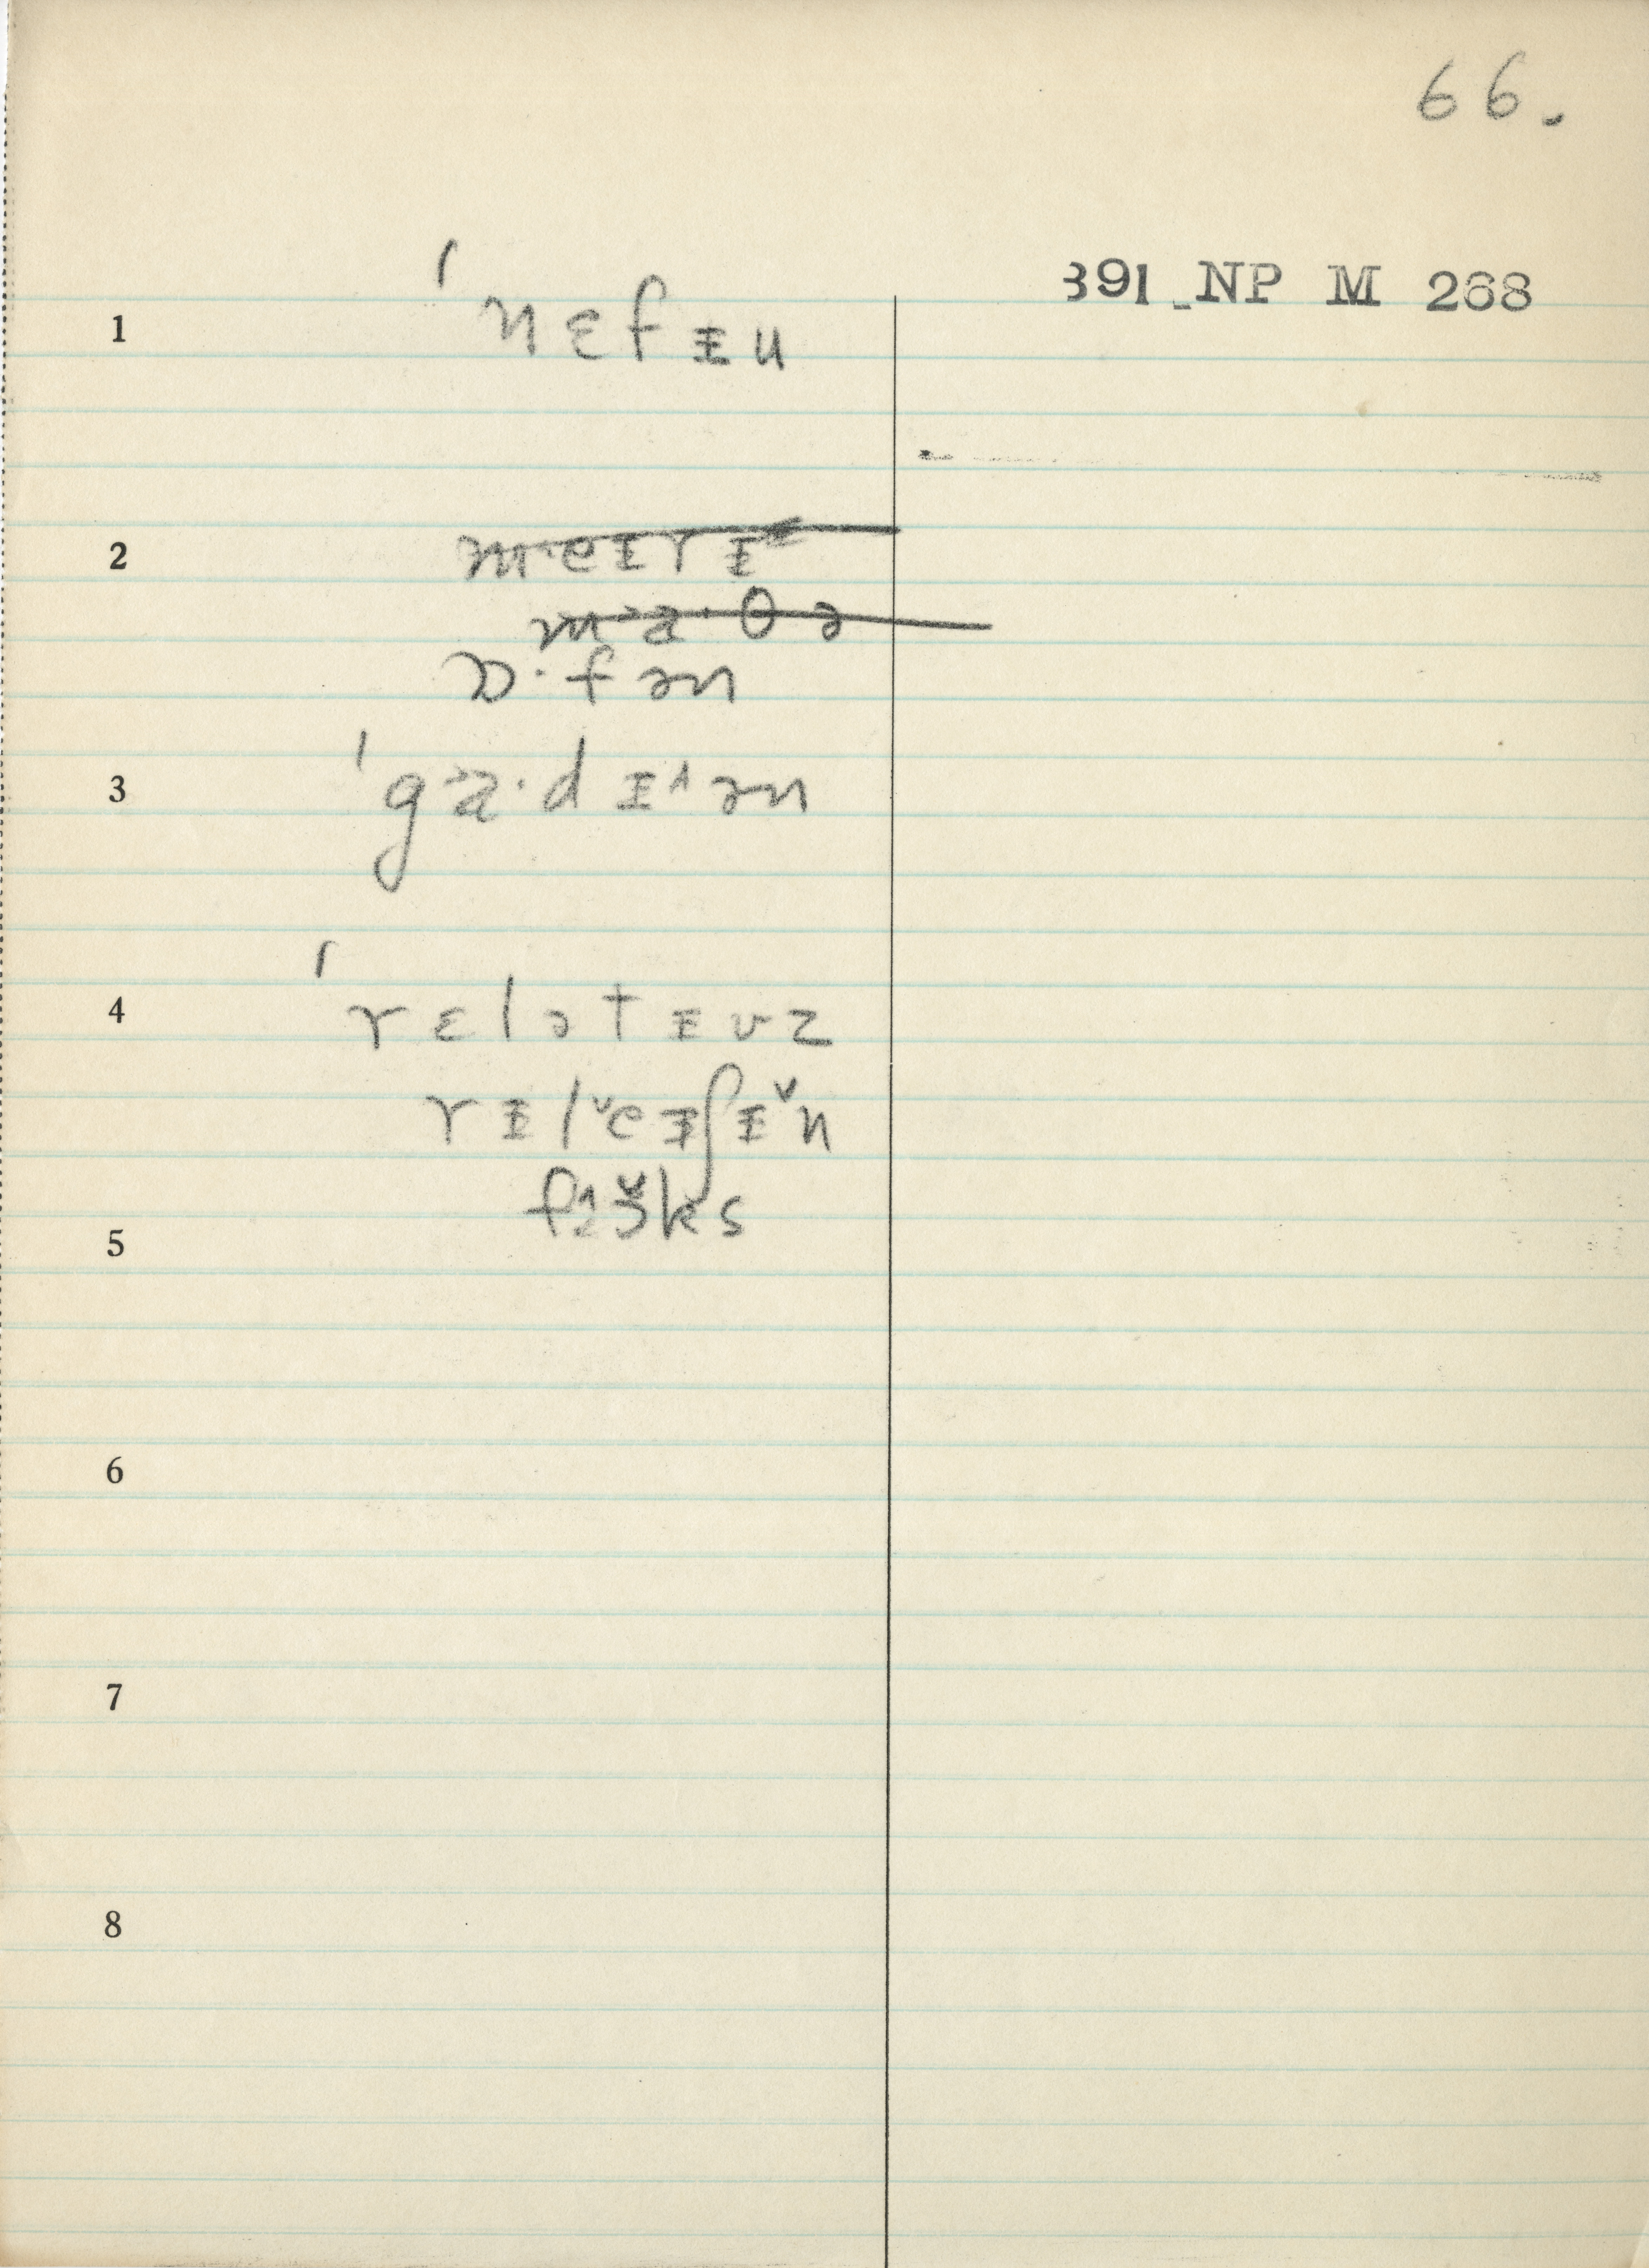 66.
391 NP M 268
1 ˈnɛfɪu
2 m·eɪrɪ
m a· θ ə
ɒ·fən
3 ˈga·dɪ^ən
4 ˈrɛlətɪvz
rɪlˇeɪʃɪˇn
5
6
7
8